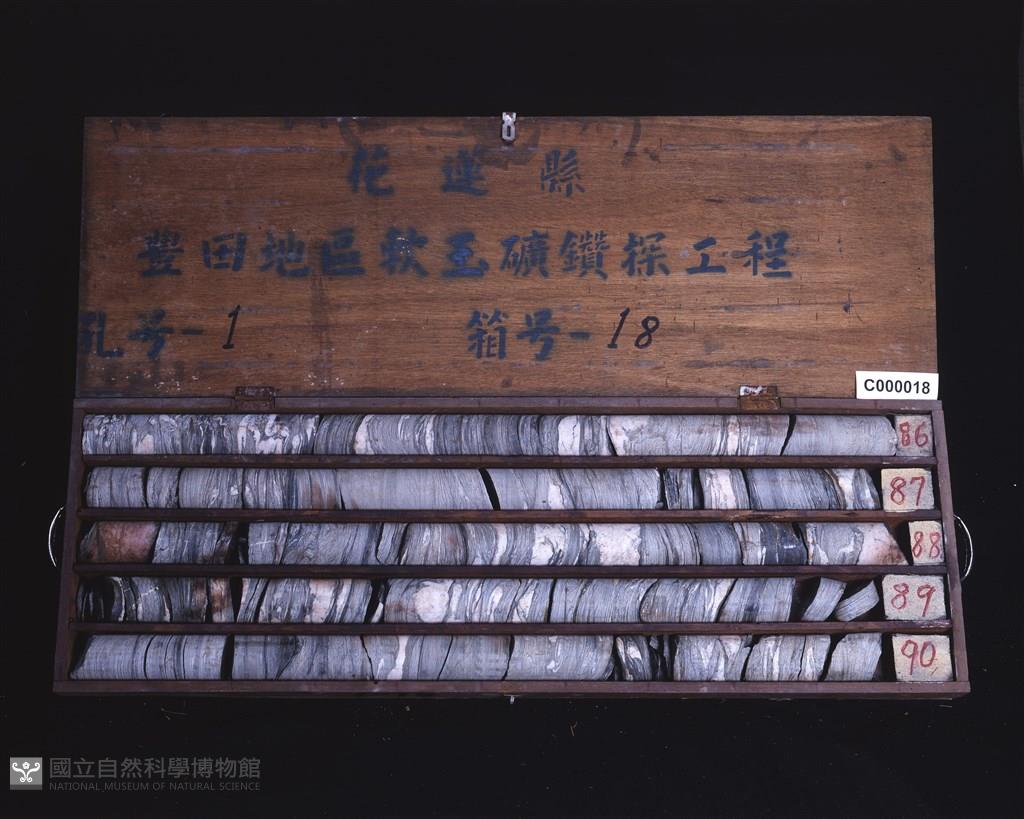 花蓮縣
豐田地區軟玉礦鑽探工程
孔号-1 箱号-18
C000018
86
87
88
89
90
國立自然科學博物館
NATIONAL MUSEUM OF NATURAL SCIENCE